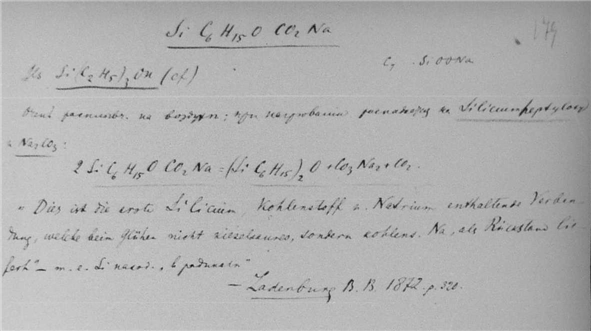 Si C₆ H₁₅ O CO₂ Na
179
Из Si(C₂H₅)₃OH (Cf)
C₇ . SiOONa
на воздухе; при нагревании на Siliciumheptyloxyd
и Na₂CO₃:
2 Si C₆ H₁₅ O CO₂ Na = (Si C₆ H₁₅)₂ O + CO₃ Na₂ + CO₂.
„Dies ist die erste Silicium, Kohlenstoff u. Natrium enthaltende Verbin-
dung, welche beim Glühen nicht kieselsaures, sondern kohlens. Na, als Rückstand lie-
fert" – т. е. Si
– Ladenburg B. B. 1872 p. 320.